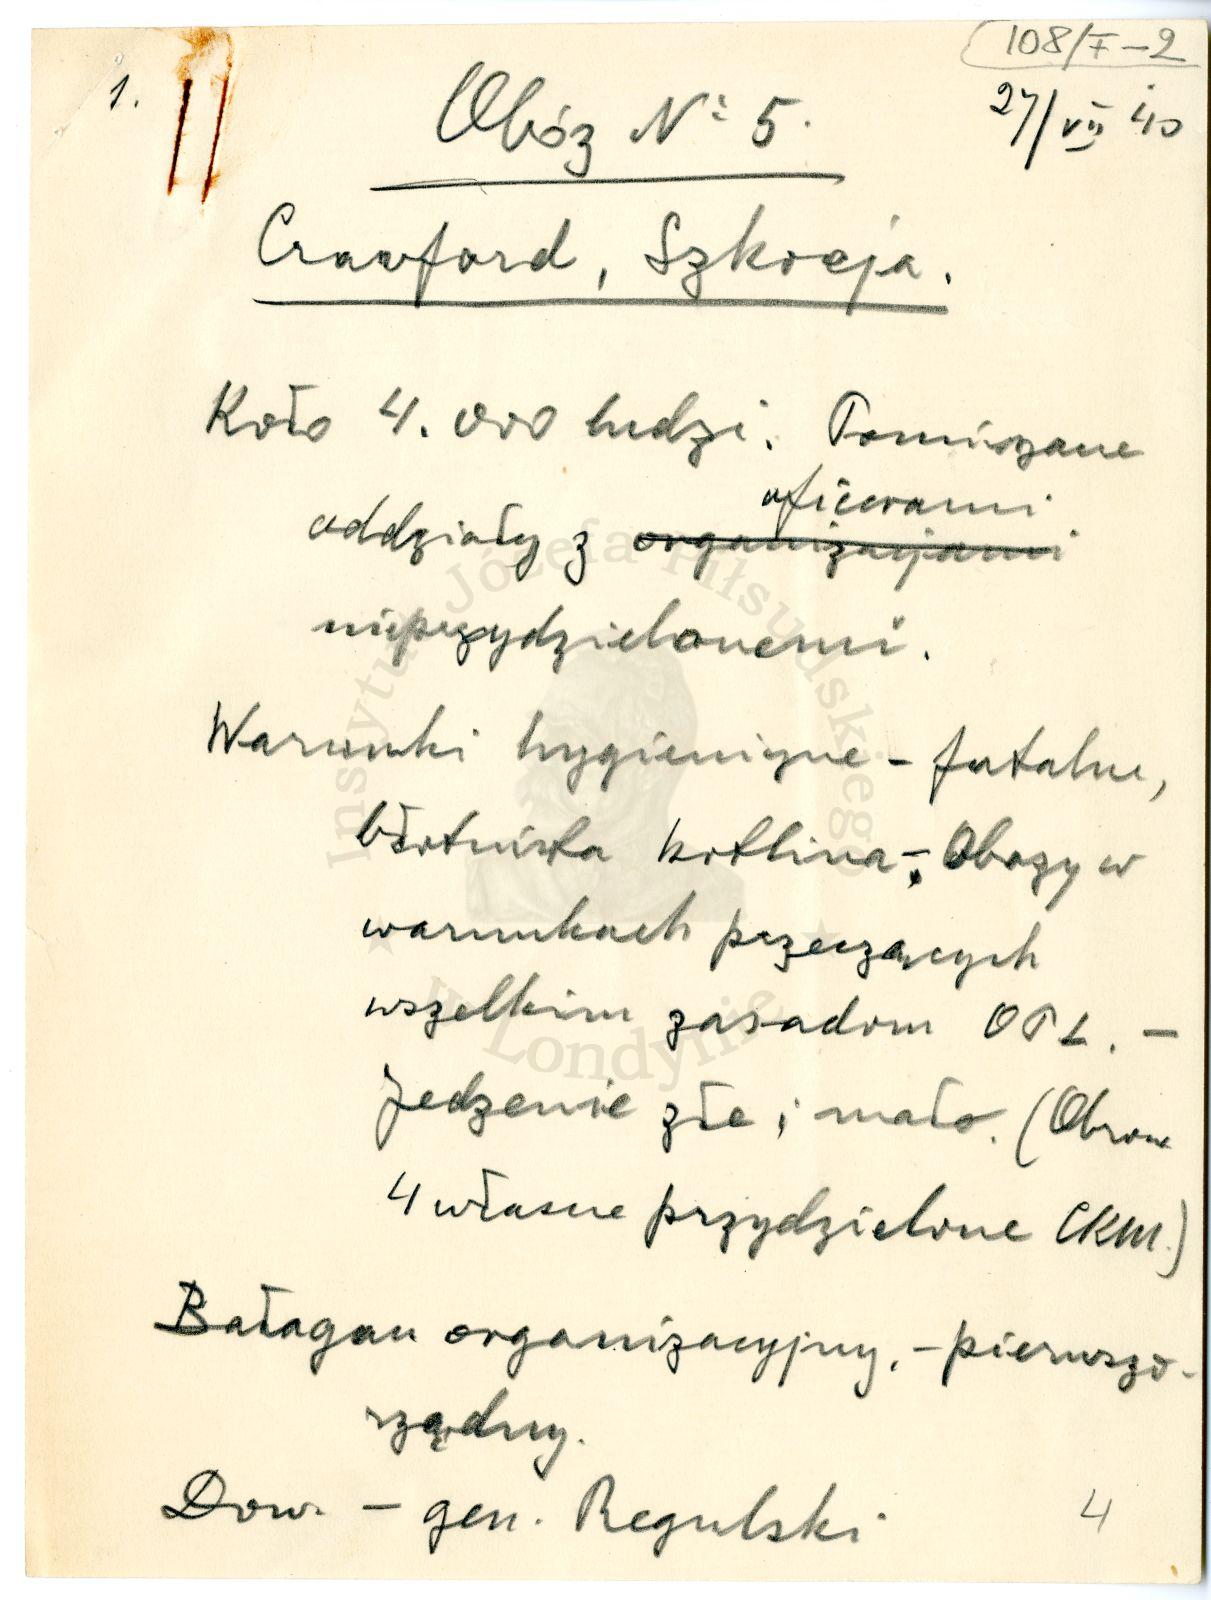 108/I-2
1.
27/VII 40
Obóz Nr 5.
Crawford, Szkocja.
Koło 4.000 ludzi. Pomieszane
oficerami
oddziały z organizacjami
nieprzydzielonemi.
Warunki hygieniczne - fatalne,
błotnista kotlina -, Obozy w
warunkach przeczących
wszelkim zasadom OPL. -
Jedzenie złe i mało. (Obrona
4 własne przydzielone CKM.)
Bałagan organizacyjny, - pierwszo-
rzędny.
Dow. - gen. Regulski
4
Instytut Józefa Piłsudskiego
w Londynie